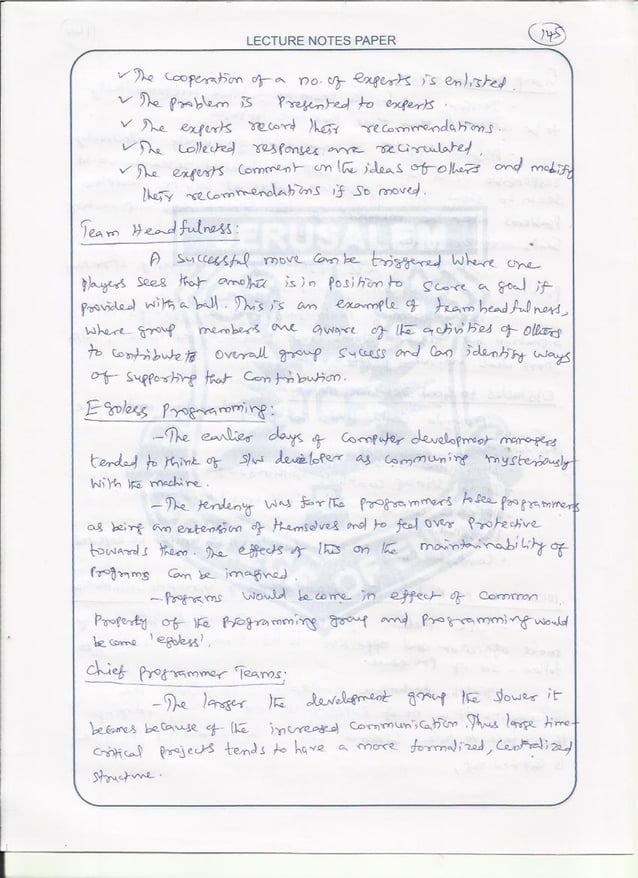 145
LECTURE NOTES PAPER
✓ The cooperation of a no. of experts is enlisted.
✓ The problem is presented to experts.
✓ The experts record their recommendations.
✓ The collected responses are recirculated.
✓ The experts comment on the ideas of others and modify
their recommendations if so moved.
Team Headfulness:
A successful move can be triggered where one
players sees that another is in position to score a goal if
provided with a ball. This is an example of team headfulness,
where group members are aware of the activities of others
to contribute to overall group success and can identify ways
of supporting that contribution.
Egoless programming:
- The earlier days of computer development managers
tended to think of s/w developer as communing mysteriously
with the machine.
- The tendency was for the programmers to see programmers
as being an extension of themselves and to feel over protective
towards them. The effects of this on the maintainability of
programs can be imagined.
- Programs would become in effect of common
property of the programming group and programming would
become 'egoless'.
Chief programmer Teams:
- The larger the development group the slower it
becomes because of the increased communication. Thus large time-
critical projects tends to have a more formalized, centralized
structure.
JERUSALEM
JCE
OF E